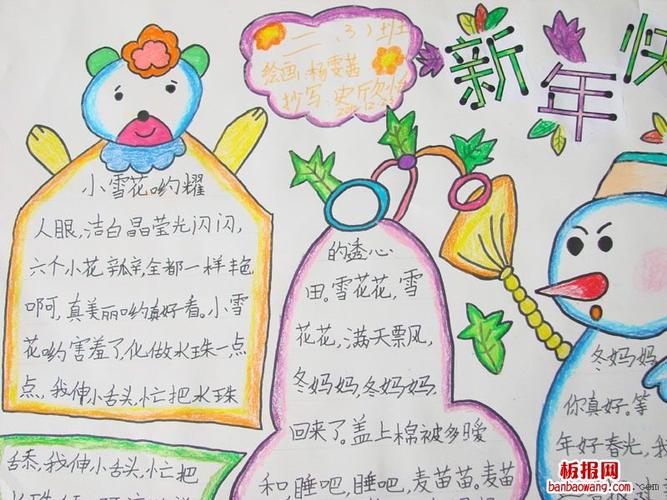 二(3)班
绘画:杨雯茜
抄写:史欣怡
新年快
小雪花哟耀
人眼,洁白晶莹光闪闪,
六个小花瓣,全都一样艳
啊呵,真美丽哟真好看。小雪
花哟害羞了,化做水珠一点
点,我伸小舌头,忙把水珠
舔,我伸小舌头,忙把
的透心
田。雪花花,雪
花花,满天票风,
冬妈妈,冬妈妈.
回来了。盖上棉被多暖
和睡吧,睡吧,麦苗苗。麦苗
冬妈妈,
你真好。等
年好春光,我
板报网
banbaowang.com